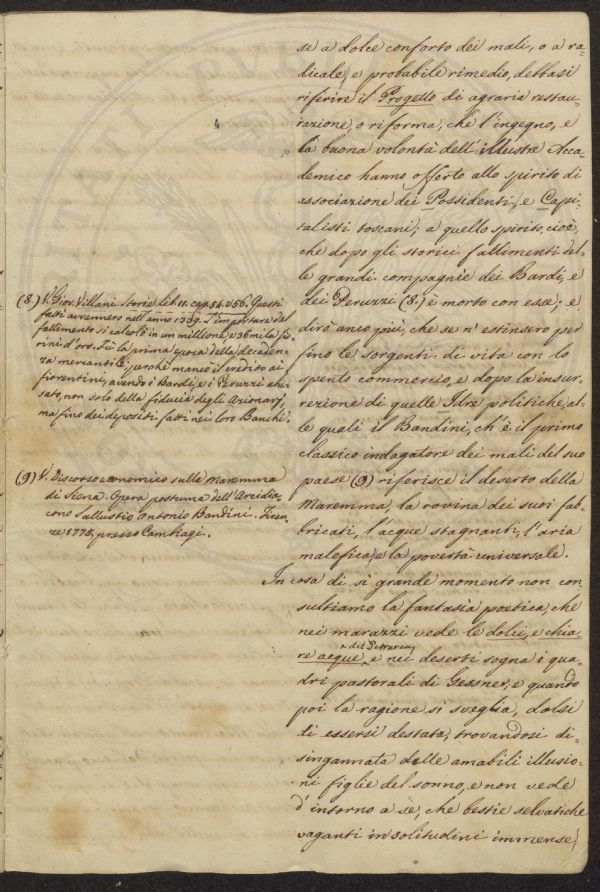 se a dolce conforto dei mali, o a ra-
dicale, e probabile rimedio, debbasi
riferire il Progetto di agraria restau-
razione, o riforma, che l'ingegno, e
la buona volontà dell'illustre Acca-
demico hanno offerto allo spirito di
associazione dei Possidenti, e Capi-
talisti toscani; a quello spirito, cioè,
che dopo gli storici fallimenti del-
le grandi compagnie dei Bardi, e
dei Peruzzi (8.) è morto con esse; e
dirò anco più, che se n'estinsero per
fino le sorgenti di vita con lo
spento commercio, e dopo la insur-
rezione di quelle Idre politiche, al-
le quali il Bandini, ch'è il primo
classico indagatore dei mali del suo
paese (9) riferisce il deserto della
Maremma, la rovina dei suoi fab-
bricati, l'acque stagnanti, l'aria
malefica, e la povertà universale.
In cosa di si grande momento non con
sultiamo la fantasia poetica, che
nei marazzi vede le dolci, e chia-
del Petrarca
re acque, e nei deserti sogna i qua-
dri pastorali di Gessner, e quando
poi la ragione si sveglia, dolsi
di essersi destata, trovandosi di-
singannata dalle amabili illusio-
ni figlie del sonno, e non vede
d'intorno a sè, che bestie selvatiche
vaganti in solitudini immense,
4
(8.) V. Giov. Villani Storie Lib. 11. cap. 54. e 56. Questi
fatti avvennero nell'anno 1339. L'importare del
fallimento si calcolò in un millione, e 36 mila fio-
rini d'oro. Fu la prima epoca della decaden-
za mercantile, perchè mancò il credito ai
fiorentini, avendo i Bardi, e i Peruzzi abu-
sato, non solo della fiducia degli Azionarj,
ma fino dei depositi fatti nei loro Banchi.
(9) V. Discorso economico sulla Maremma
di Siena. Opera postuma dell'Arcidia-
cono Sallustio Antonio Bandini. Firen-
ze 1775. presso Cambiagi.